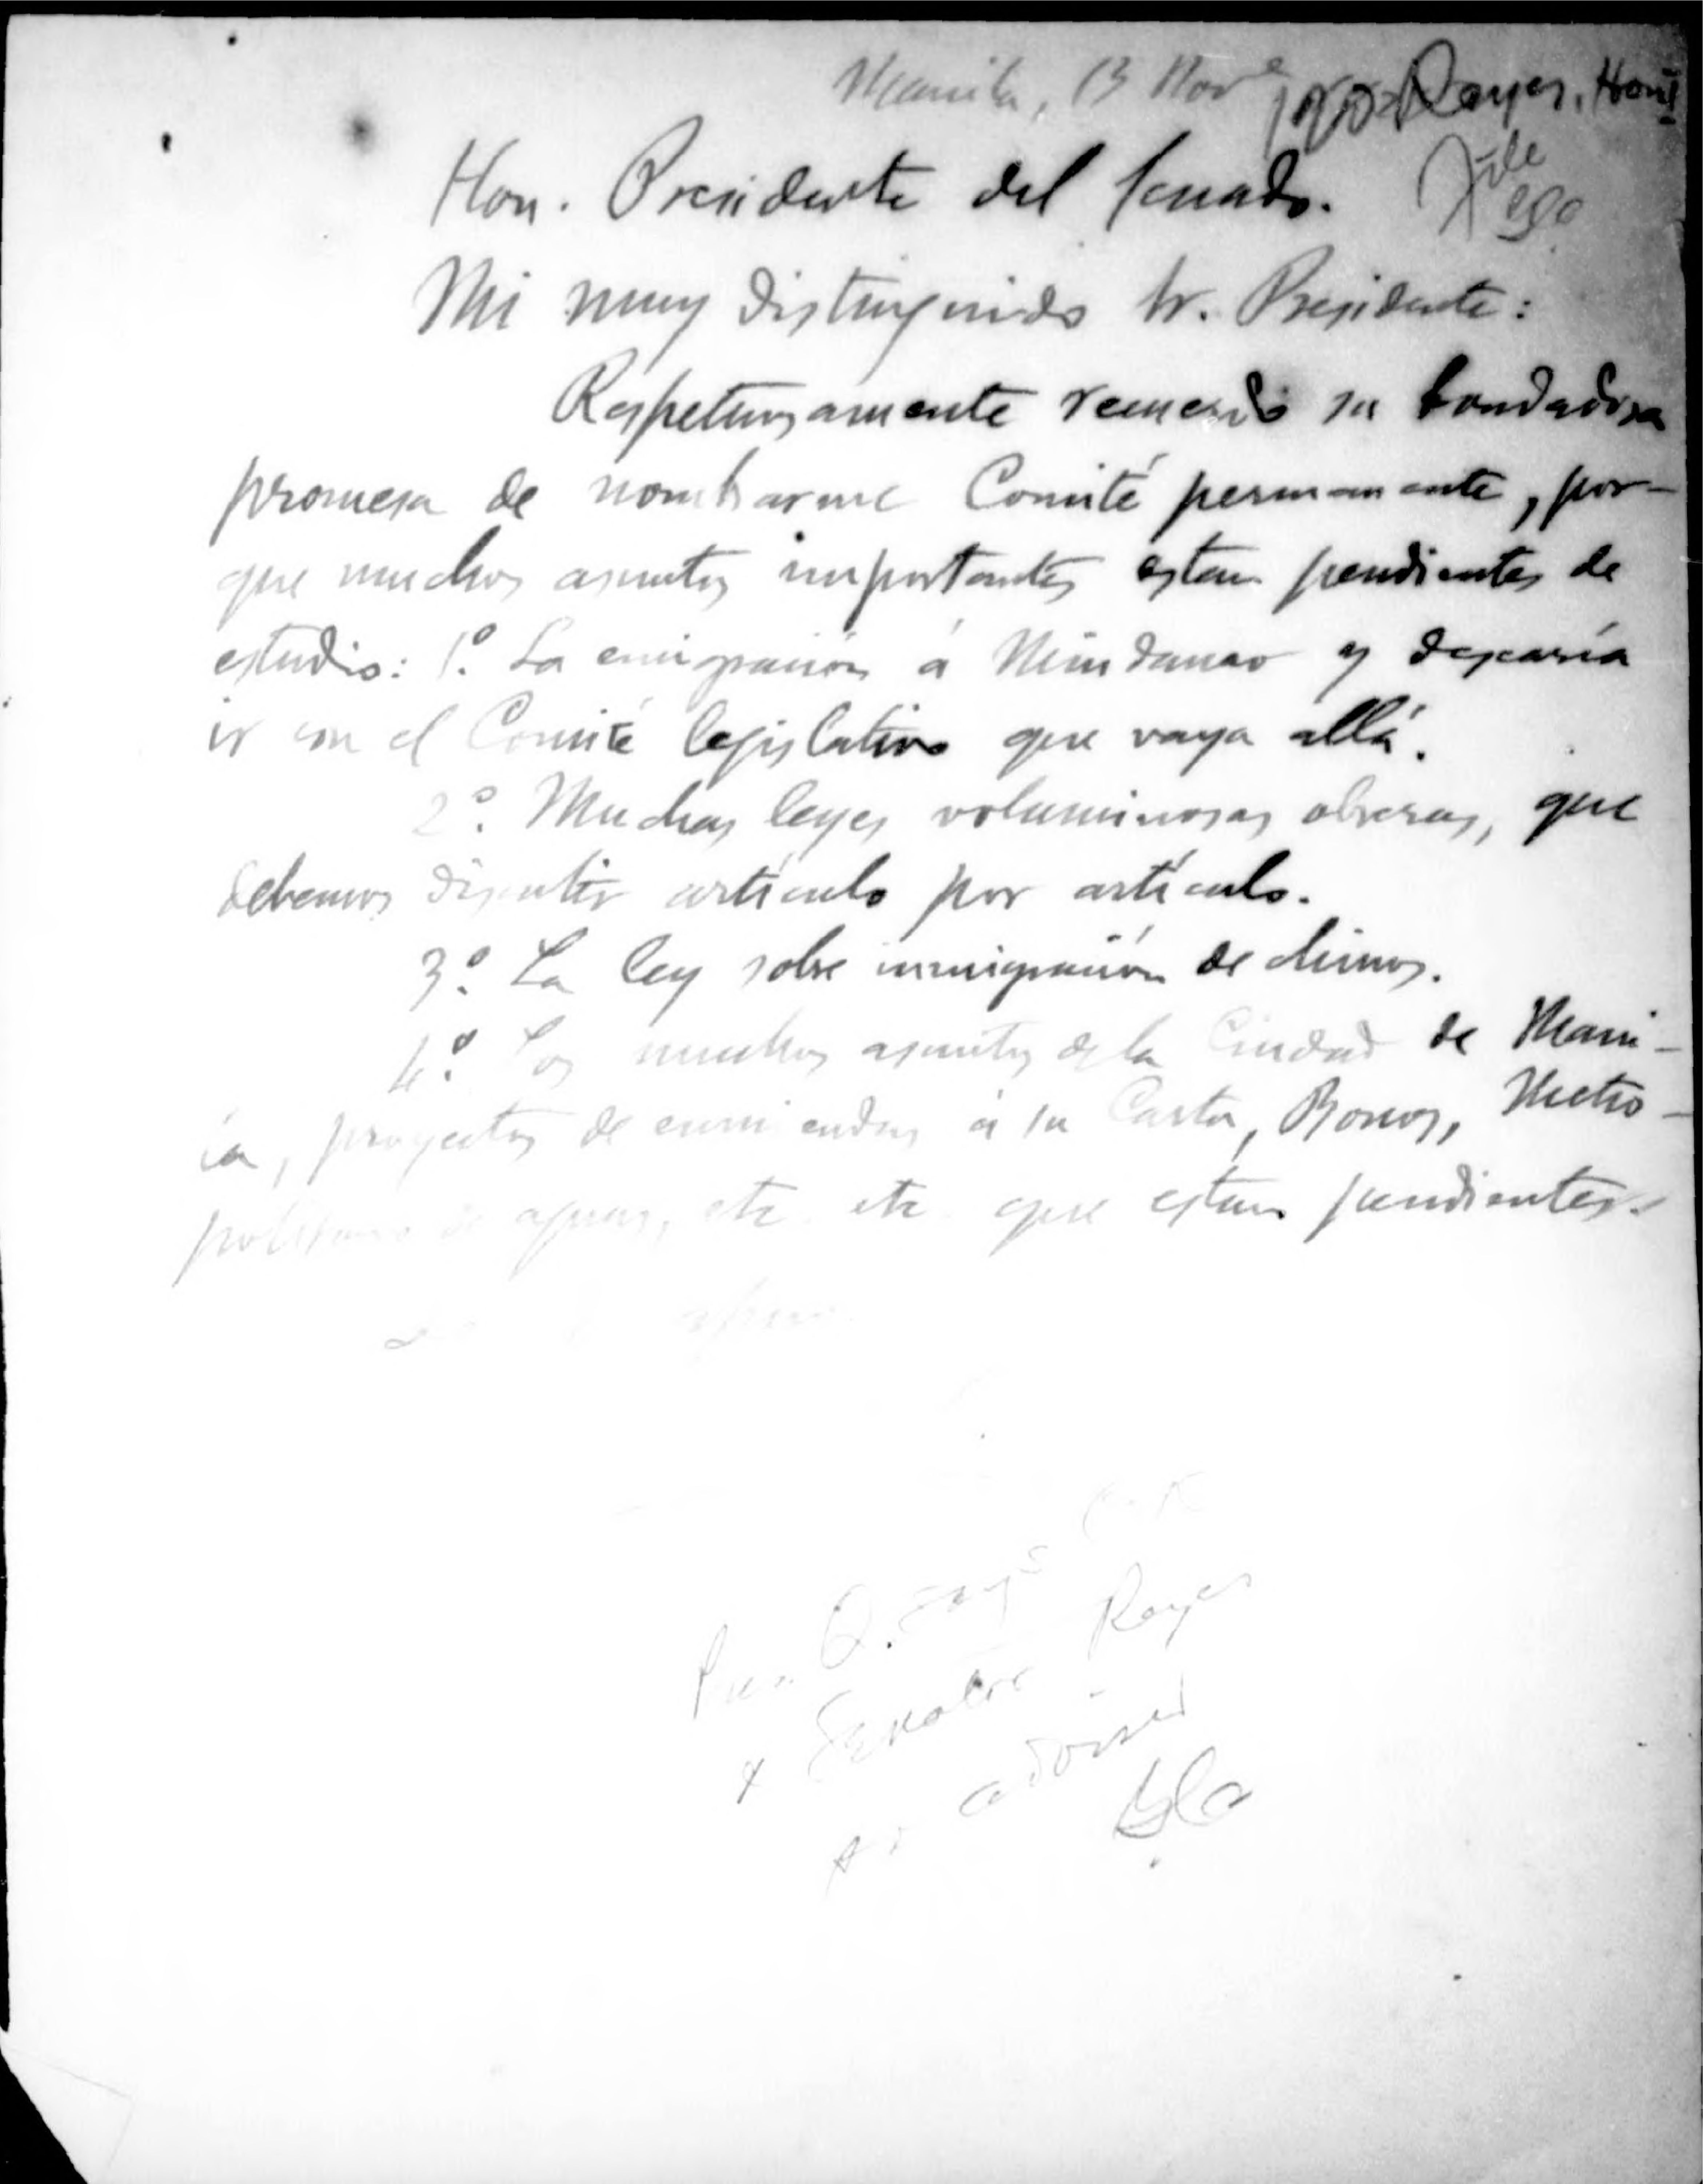 Manila, 13 Nov.e 1920 Reyes, Hon.
File
Hon. Presidente del Senado.
Mi muy distinguido Sr. Presidente:
Respetuosamente recuerdo su bondadosa
promesa de nombrarme Comité permanente, por-
que muchos asuntos importantes estan pendientes de
estudio: 1.º La emigración á Mindanao y desearía
ir con el Comité legislativo que vaya allá.
2.º Muchas leyes voluminosas obreras, que
debemos discutir artículo por artículo.
3.º La ley sobre inmigración de chinos.
4.º Los muchos asuntos de la Ciudad de Mani-
la, proyectos de enmiendas á su Carta, Bonos, Metro-
politano de aguas, etc. etc. que estan pendientes.
Pres. Q. says
Senator Reyes
so advised